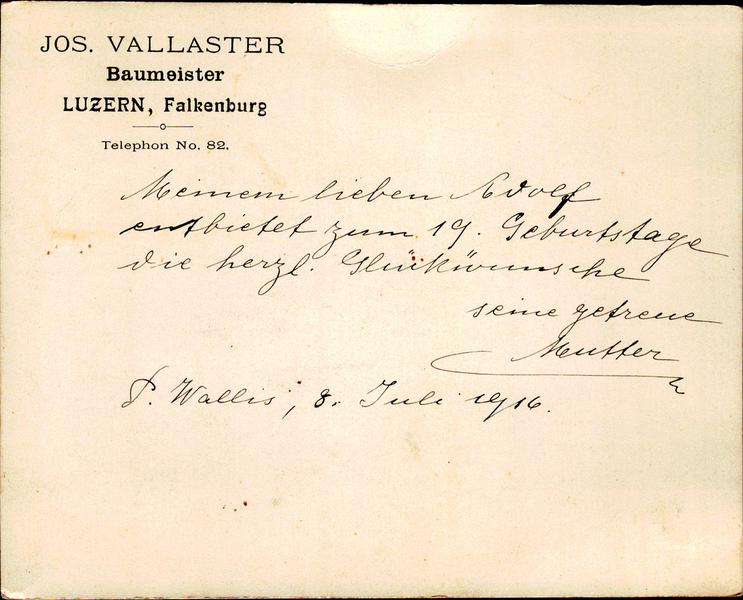 JOS. VALLASTER
Baumeister
LUZERN, Falkenburg
Telephon No. 82.
Meinem lieben Adolf
entbietet zum 19. Geburtstage
die herzl. Glückwünsche
seine getreue
Mutter
P. Wallis, 8. Juli 1916.